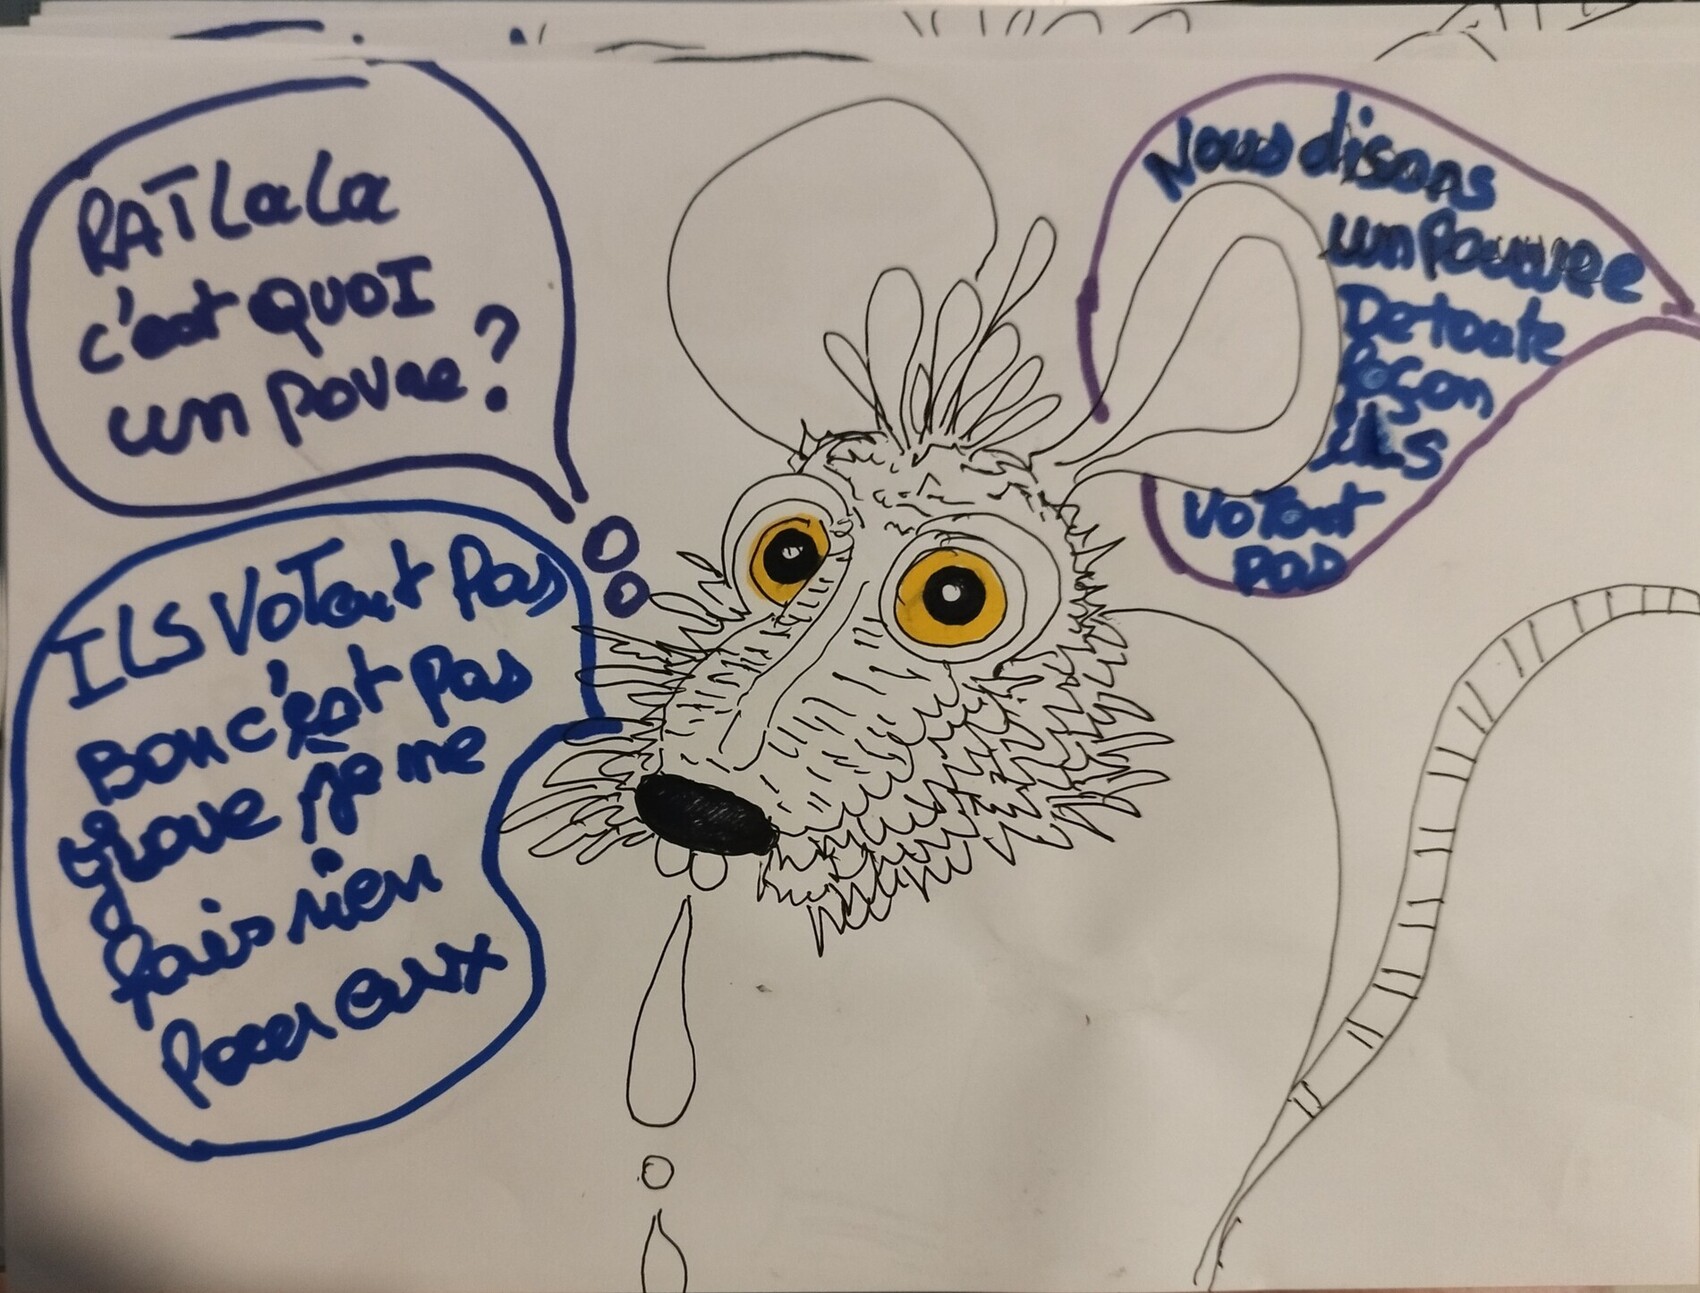 RATLaLa
c'est QUOI
un povre ?
Nous disons
un Pauvre
De toute
façon
ils
VoTent
pas
ILS VoTent Pas
Bon c'est pas
grave je ne
fais rien
Pour eux